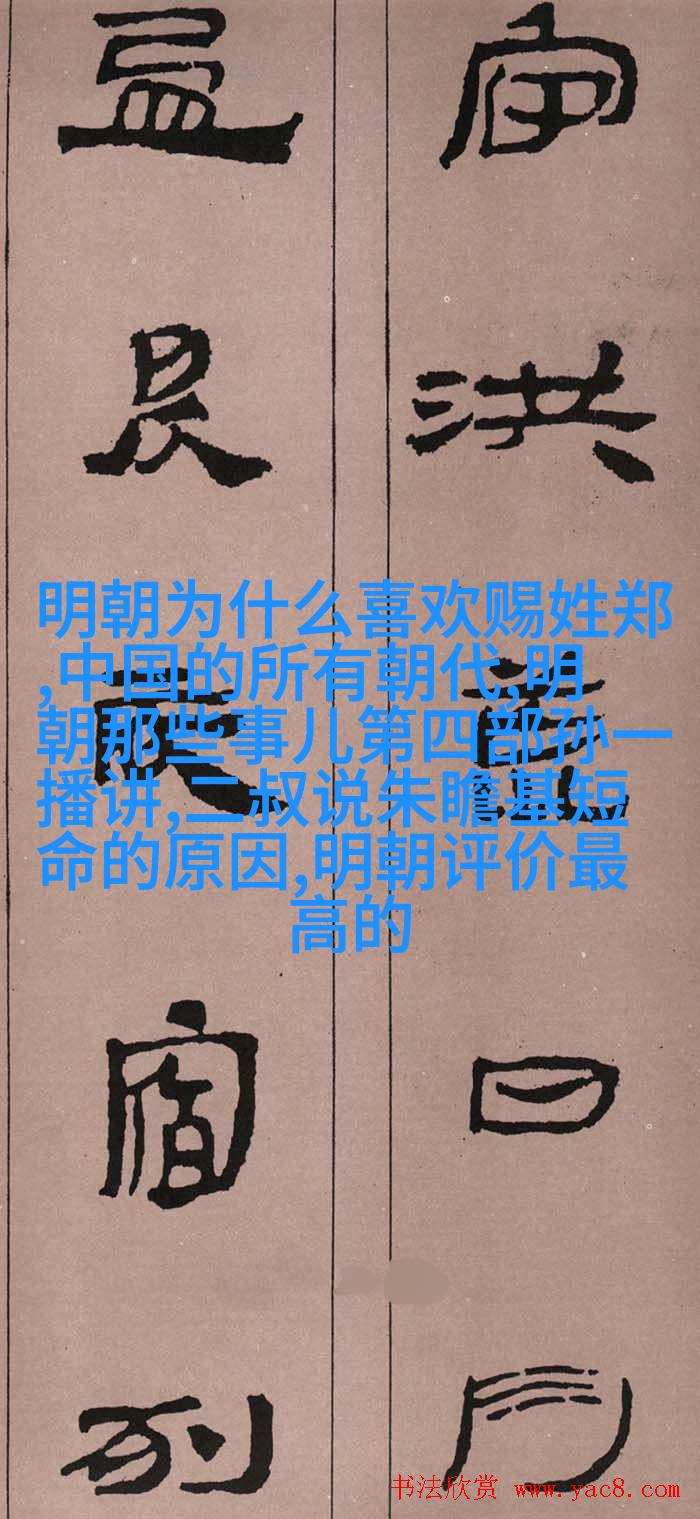 宇洪荒日月
盈昃辰宿列
明朝为什么喜欢赐姓郑
,中国的所有朝代,明
朝那些事儿第四部孙一
播讲,二叔说朱瞻基短
命的原因,明朝评价最
高的
书法欣赏 www.yac8.com